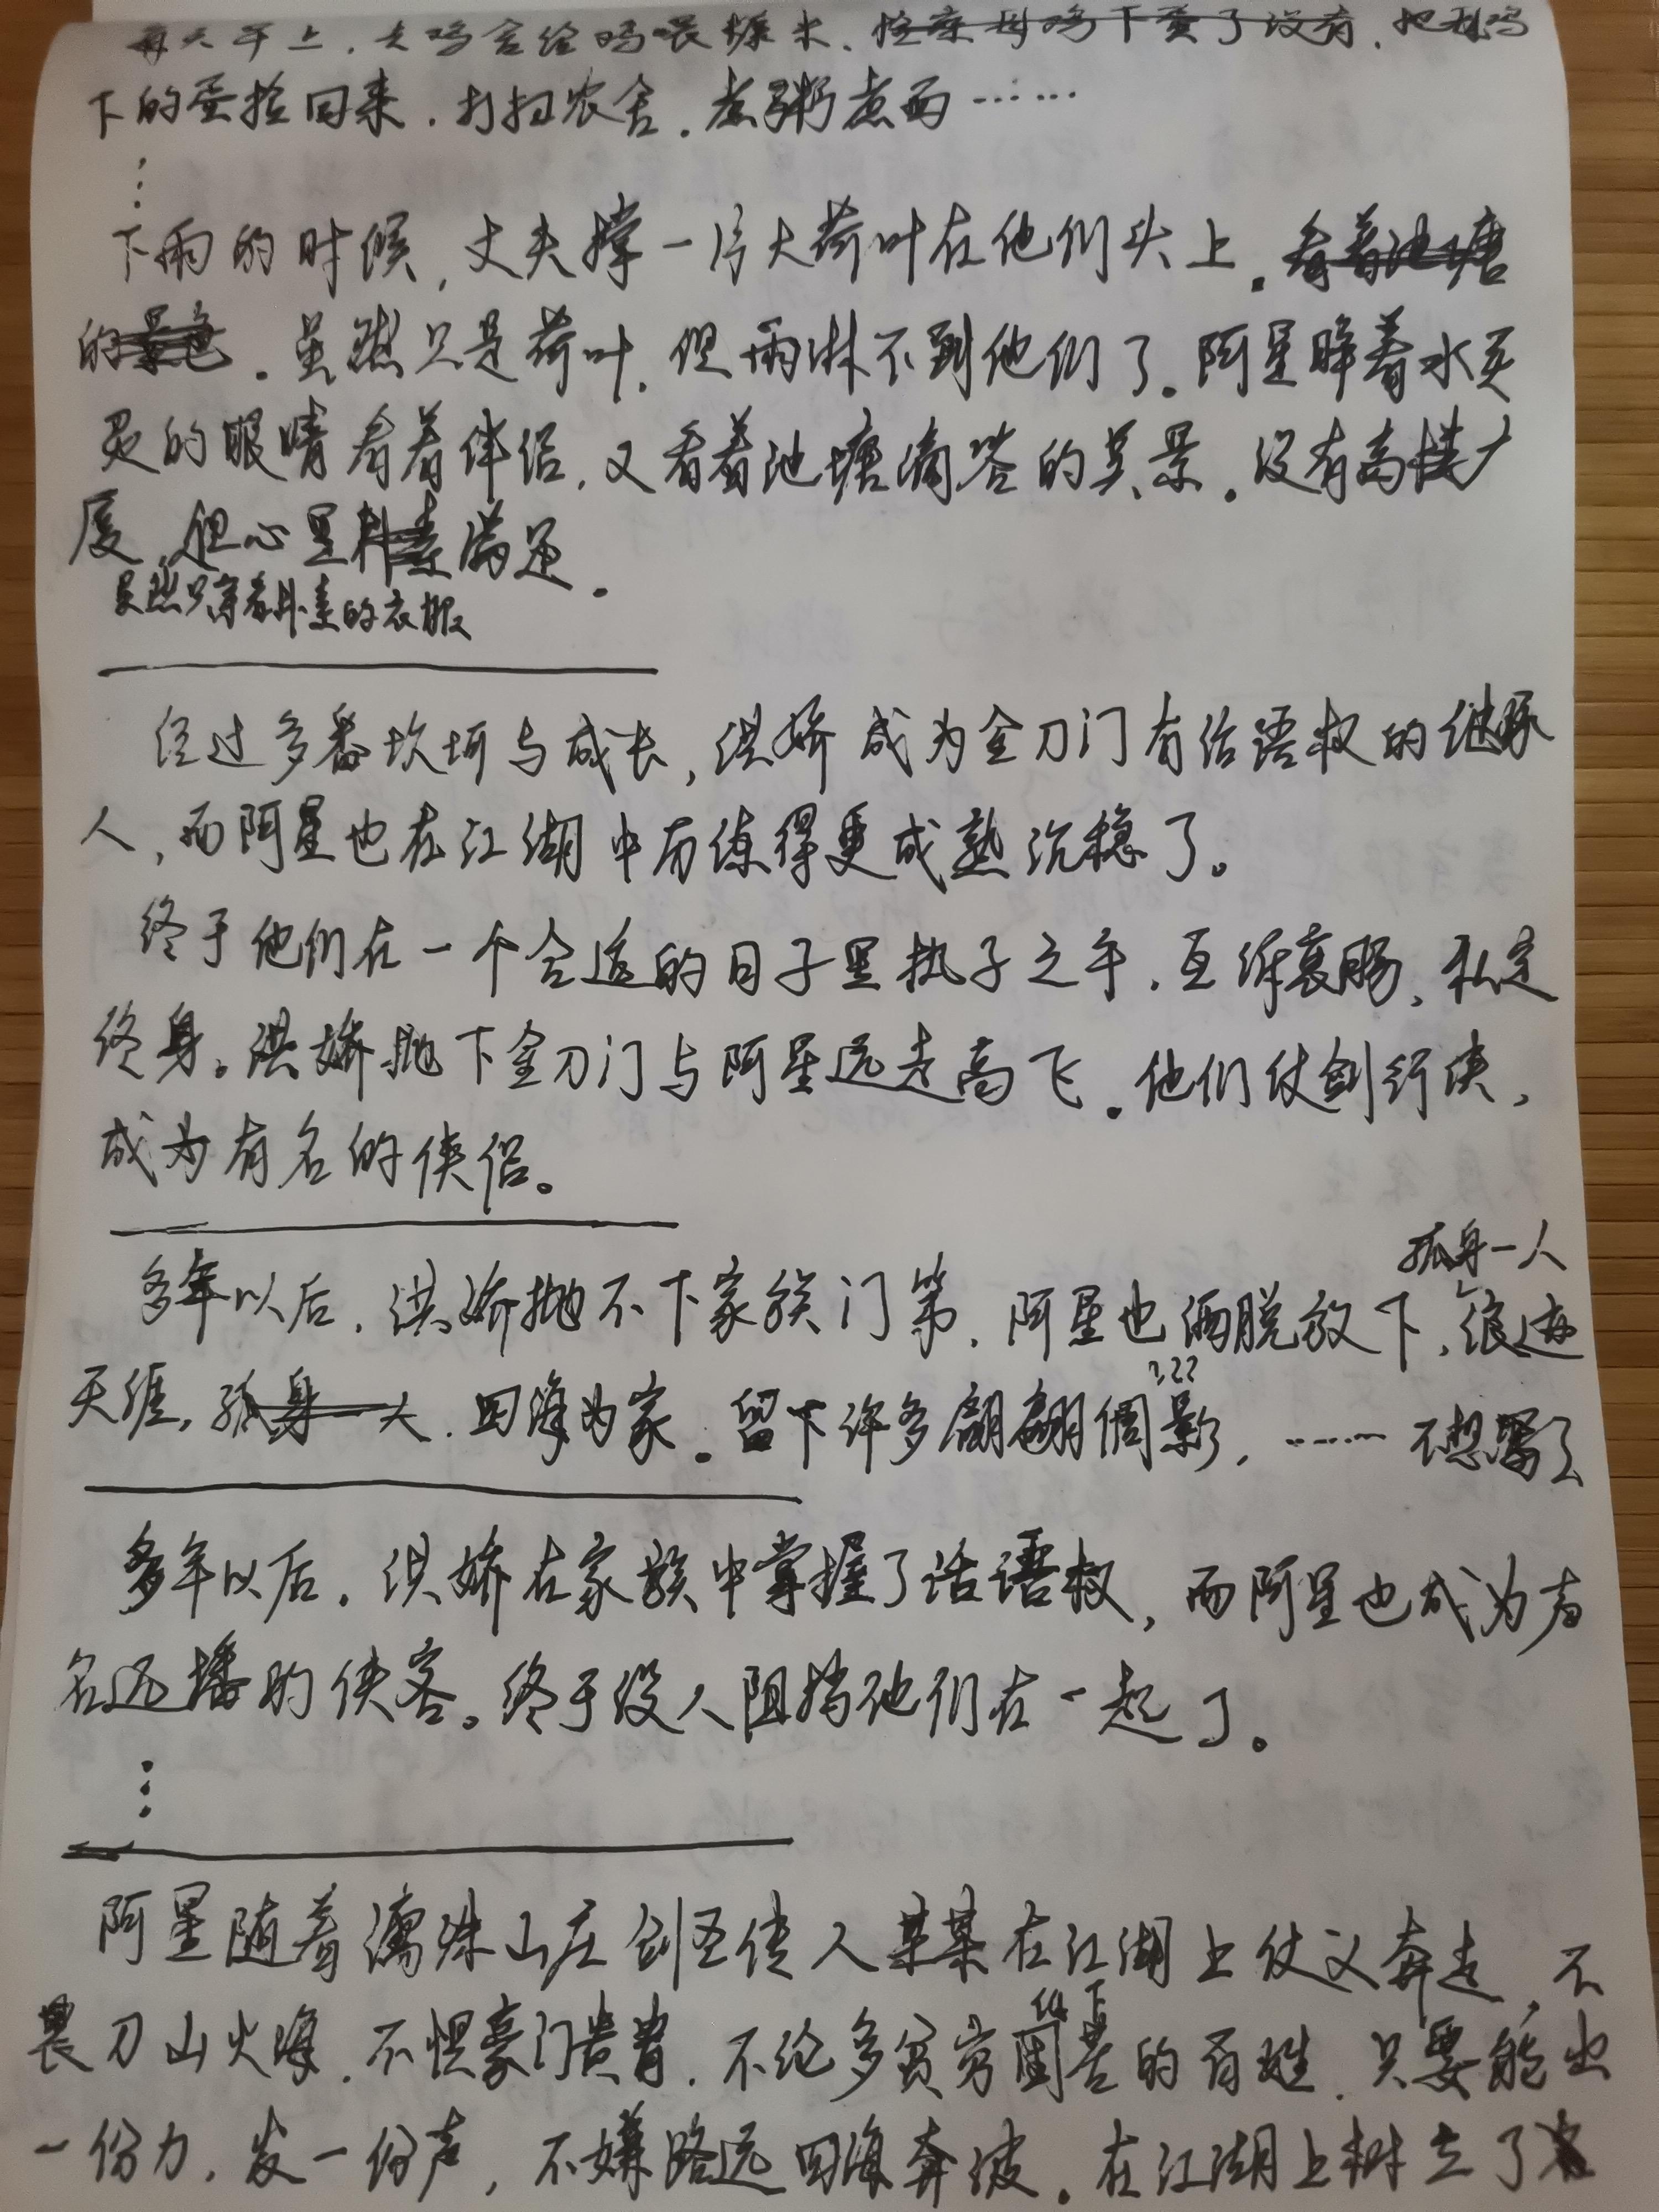 每天早上，去鸡舍给鸡喂糠米、检查母鸡下蛋了没有，把鸡
下的蛋捡回来，打扫农舍，煮粥煮面……
⋮
下雨的时候，丈夫撑一片大荷叶在他们头上。看着池塘
的景色。虽然只是荷叶，但雨淋不到他们了。阿星睁着水灵
灵的眼睛看着伴侣，又看着池塘滴答的美景。没有高楼大
厦，但心里朴素满足。
虽然只穿着朴素的衣服
经过多番坎坷与成长，洪娇成为金刀门有话语权的继承
人，而阿星也在江湖中历练得更成熟沉稳了。
终于他们在一个合适的日子里执子之手，互诉衷肠，私定
终身。洪娇抛下金刀门与阿星远走高飞。他们仗剑行侠，
成为有名的侠侣。
孤身一人
多年以后，洪娇抛不下家族门第，阿星也洒脱放下，浪迹
天涯，孤身一人，四海为家。留下许多翩翩倜影，……不想写了
???
多年以后，洪娇在家族中掌握了话语权，而阿星也成为声
名远播的侠客。终于没人阻挡他们在一起了。
⋮
阿星随着濡沫山庄剑圣传人某某在江湖上仗义奔走，不
畏刀山火海，不惧豪门贵胄，不论多贫穷困苦的百姓，只要能出
一份力，发一份声，不嫌路远四海奔波。在江湖上树立了